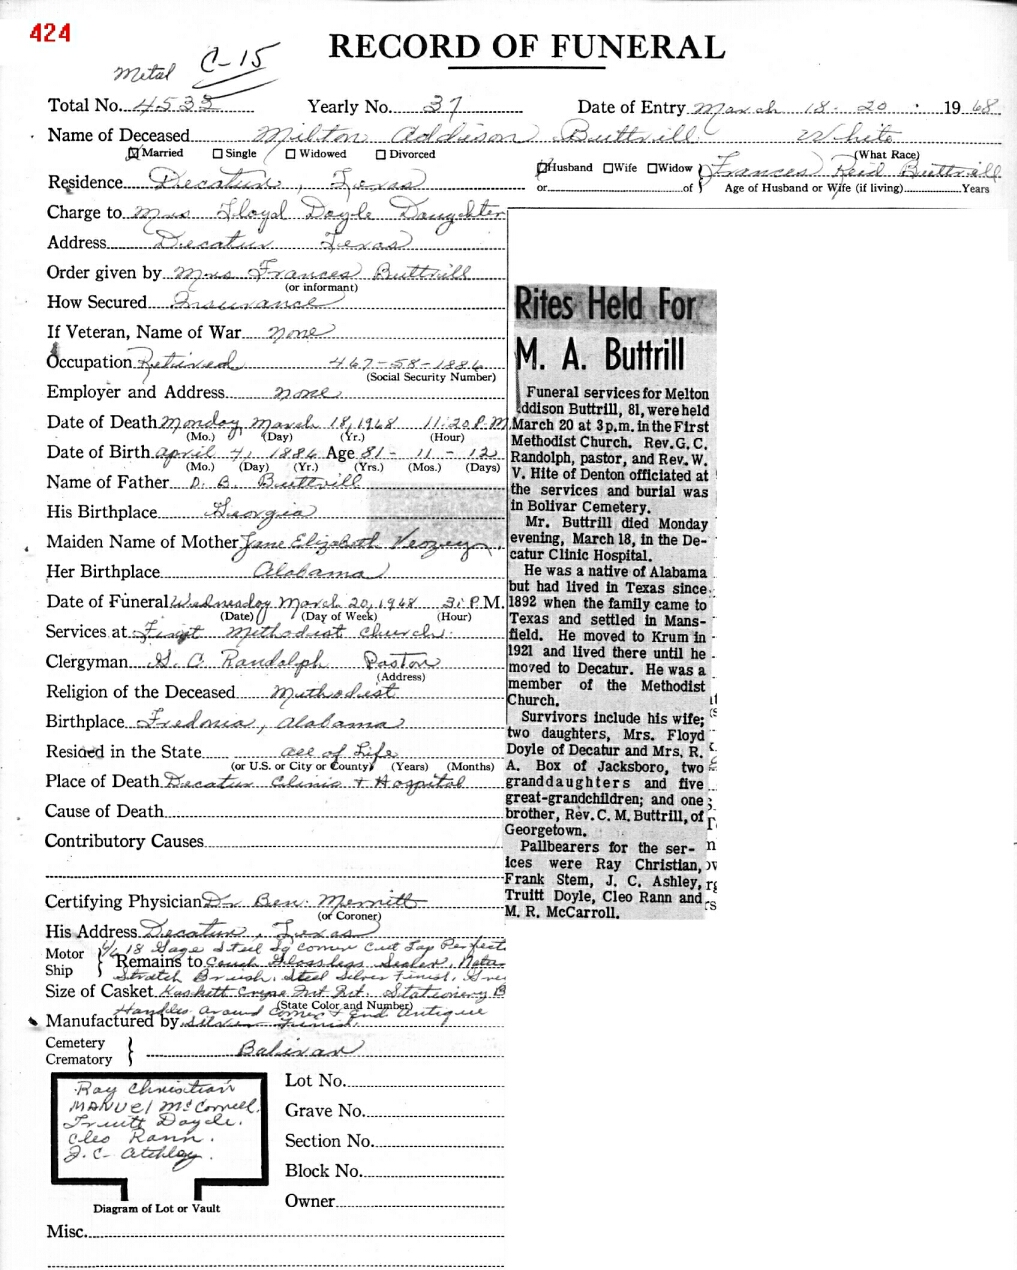 424
RECORD OF FUNERAL
Metal C-15
Total No. 4533 Yearly No. 37 Date of Entry March 18-20 1968
Name of Deceased Milton Addison Buttrill White
(What Race)
Married Single Widowed Divorced
Husband Wife Widow Frances Reid Buttrill
or of Age of Husband or Wife (if living) Years
Residence Decatur, Texas
Charge to Mrs Floyd Doyle Daughter
Address Decatur Texas
Order given by Mrs Frances Buttrill
(or informant)
How Secured Insurance
If Veteran, Name of War none
Occupation Retired 467-58-1886
(Social Security Number)
Employer and Address none
Date of Death Monday, March 18, 1968 11:20 P.M.
(Mo.) (Day) (Yr.) (Hour)
Date of Birth April 1886 Age 81 - 11 - 12
(Mo.) (Day) (Yr.) (Yrs.) (Mos.) (Days)
Name of Father D. B. Buttrill
His Birthplace Georgia
Maiden Name of Mother Jane Elizabeth
Her Birthplace Alabama
Date of Funeral Wednesday March 20, 1968 3: P.M.
(Date) (Day of Week) (Hour)
Services at First Methodist Church
Clergyman G. C. Randolph Pastor
(Address)
Religion of the Deceased Methodist
Birthplace Fredonia, Alabama
Resided in the State all of Life
(or U.S. or City or County) (Years) (Months)
Place of Death Decatur Clinic + Hospital
Cause of Death
Contributory Causes
Certifying Physician Dr Ben Merritt
(or Coroner)
His Address Decatur, Texas
Motor Ship 18 Gage Steel Sq Corner Cut Top Perfect
Remains to Couch Glassless Sealer,
Stretch Brush, Steel Silver Finish,
Size of Casket Crepe Int Stationary B
(State Color and Number)
Handles around Corner + End Antique
Manufactured by Silver Finish.
Cemetery
Crematory Bolivar
Ray Christian
MANUEl McCorrell.
Truitt Doyle.
Cleo Rann.
J. C. Atchley.
Diagram of Lot or Vault
Lot No.
Grave No.
Section No.
Block No.
Owner
Misc.
Rites Held For
M. A. Buttrill
Funeral services for Melton
ddison Buttrill, 81, were held
March 20 at 3 p.m. in the First
Methodist Church. Rev. G. C.
Randolph, pastor, and Rev. W.
V. Hite of Denton officiated at
the services and burial was
in Bolivar Cemetery.
Mr. Buttrill died Monday
evening, March 18, in the De-
catur Clinic Hospital.
He was a native of Alabama
but had lived in Texas since
1892 when the family came to
Texas and settled in Mans-
field. He moved to Krum in
1921 and lived there until he
moved to Decatur. He was a
member of the Methodist
Church.
Survivors include his wife;
two daughters, Mrs. Floyd
Doyle of Decatur and Mrs. R.
A. Box of Jacksboro, two
granddaughters and five
great-grandchildren; and one
brother, Rev. C. M. Buttrill, of
Georgetown.
Pallbearers for the ser-
ices were Ray Christian,
Frank Stem, J. C. Ashley,
Truitt Doyle, Cleo Rann and
M. R. McCarroll.